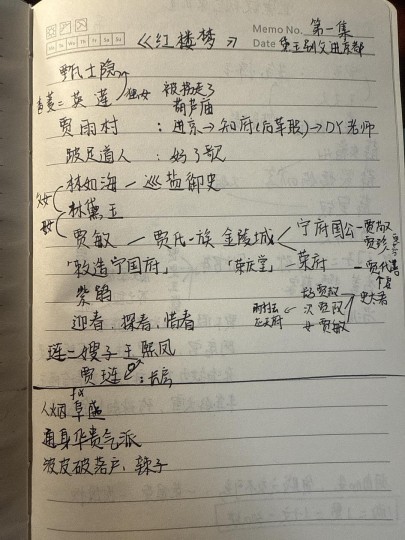 Memo No. 第一集
《红楼梦》 Date 黛玉别父进京都
Mo Tu We Th Fr Sa Su
甄士隐
香菱=英莲 独女 被拐走了
葫芦庙
贾雨村 : 进京→知府(后革职)→DY老师
跛足道人 : 好了歌
父女 林如海—巡盐御史
林黛玉
母 贾敏—贾氏一族 金陵城 宁府国公—贾敬
贾珍
「敕造宁国府」 「荣庆堂」—荣府—贾代善
紫鹃 长贾赦 史太君
迎春、探春、惜春 次贾政
女贾敏
琏二嫂子王熙凤
贾琏
人烟阜盛
通身华贵气派
泼皮破落户,辣子